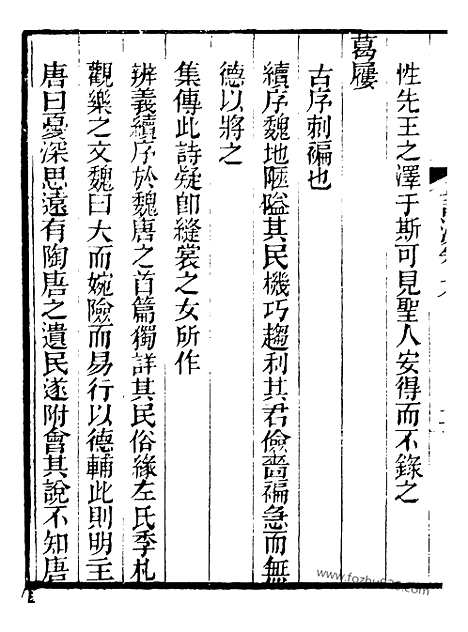 性先王之澤于斯可見聖人安得而不錄之
葛屨
古序刺褊也
續序魏地陿隘其民機巧趨利其君儉嗇褊急而無
德以將之
集傳此詩疑卽縫裳之女所作
辨義續序於魏唐之首篇獨詳其民俗緣左氏季札
觀樂之文魏曰大而婉險而易行以德輔此則明主
唐曰憂深思遠有陶唐之遺民遂附會其說不知唐